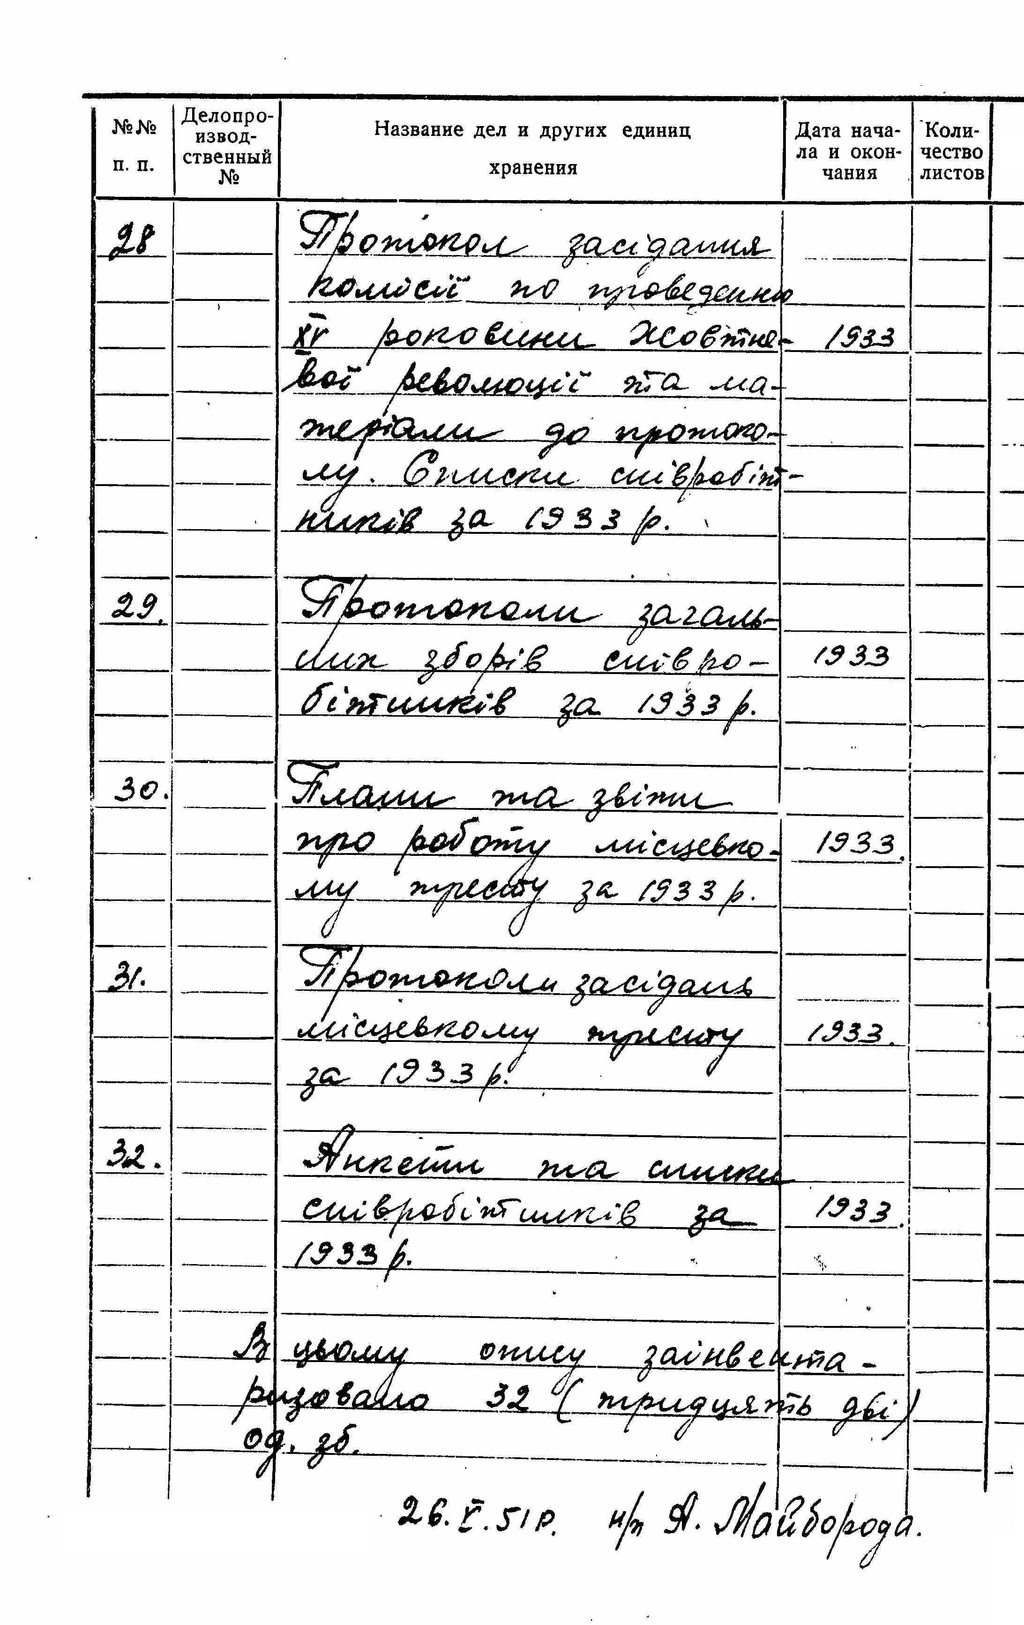 №№ п. п.
Делопро-
извод-
ственный
№
Название дел и других единиц
хранения
Дата нача-
ла и окон-
чания
Коли-
чество
листов
28 Протокол засідання
комісії по проведенню
XV роковини Жовтне- 1933
вої революції та ма-
теріали до протоко-
лу. Списки співробіт-
ників за 1933 р.
29. Протоколи загаль-
них зборів співро- 1933
бітників за 1933 р.
30. Плани та звіти
про роботу місцевко- 1933.
му тресту за 1933 р.
31. Протоколи засідань
місцевкому тресту 1933.
за 1933 р.
32. Анкети та списки
співробітників за 1933.
1933 р.
В цьому опису заінвента-
ризовано 32 (тридцять дві)
од. зб.
26.V.51 р. н/п А. Майборода.